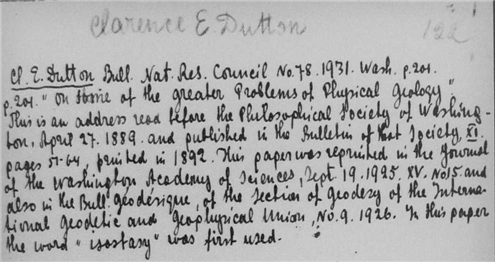 Clarence E. Dutton 122
Cl. E. Dutton Bull. Nat. Res. Council No. 78. 1931. Wash. p. 201.
p. 201. "On Some of the greater Problems of Physical Geology".
This is an address read before the Philosophical Society of Washing-
ton, April 27. 1889. and published in the Bulletin of that Society, XI.
pages 51-64, printed in 1892. This paper was reprinted in the Journal
of the Washington Academy of Sciences, Sept. 19. 1925. XV. No 15. and
also in the Bull. Geodesique, of the Section of Geodesy of the Interna-
tional Geodetic and Geophysical Union, No. 9. 1926. In this paper
the word "isostasy" was first used.